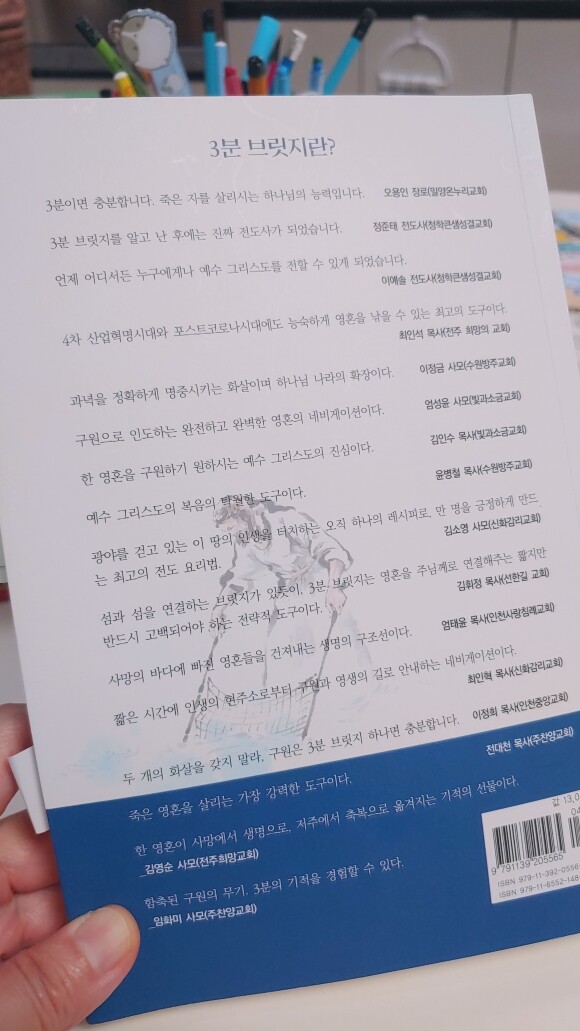 3분 브릿지란?
3분이면 충분합니다. 죽은 자를 살리시는 하나님의 능력입니다. 오용인 장로(밀양온누리교회)
3분 브릿지를 알고 난 후에는 진짜 전도사가 되었습니다. 정준태 전도사(청학큰샘성결교회)
언제 어디서든 누구에게나 예수 그리스도를 전할 수 있게 되었습니다.
이애솔 전도사(청학큰샘성결교회)
4차 산업혁명시대와 포스트코로나시대에도 능숙하게 영혼을 낚을 수 있는 최고의 도구이다.
최인석 목사(전주 희망의 교회)
과녁을 정확하게 명중시키는 화살이며 하나님 나라의 확장이다. 이정금 사모(수원방주교회)
구원으로 인도하는 완전하고 완벽한 영혼의 네비게이션이다. 엄성윤 사모(빛과소금교회)
한 영혼을 구원하기 원하시는 예수 그리스도의 진심이다. 김인수 목사(빛과소금교회)
예수 그리스도의 복음의 탁월한 도구이다. 윤병철 목사(수원방주교회)
광야를 걷고 있는 이 땅의 인생을 터치하는 오직 하나의 레시피로, 만 명을 긍정하게 만드
는 최고의 전도 요리법. 김소영 사모(신화감리교회)
섬과 섬을 연결하는 브릿지가 있듯이, 3분 브릿지는 영혼을 주님께로 연결해주는 짧지만
반드시 고백되어야 하는 전략적 도구이다. 김휘정 목사(선한길 교회)
사망의 바다에 빠진 영혼들을 건져내는 생명의 구조선이다. 엄태윤 목사(인천사랑침례교회)
짧은 시간에 인생의 현주소로부터 구원과 영생의 길로 안내하는 네비게이션이다.
최인혁 목사(신화감리교회)
두 개의 화살을 갖지 말라, 구원은 3분 브릿지 하나면 충분합니다. 이정희 목사(인천중앙교회)
죽은 영혼을 살리는 가장 강력한 도구이다. 전대천 목사(주찬양교회)
한 영혼이 사망에서 생명으로, 저주에서 축복으로 옮겨지는 기적의 선물이다.
_김영순 사모(전주희망교회)
함축된 구원의 무기, 3분의 기적을 경험할 수 있다.
_임화미 사모(주찬양교회)
값 13,0
04
9 791139 205565
ISBN 979-11-392-0556
ISBN 979-11-6552-148